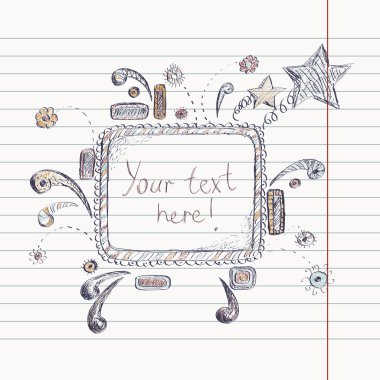 Your text
here!